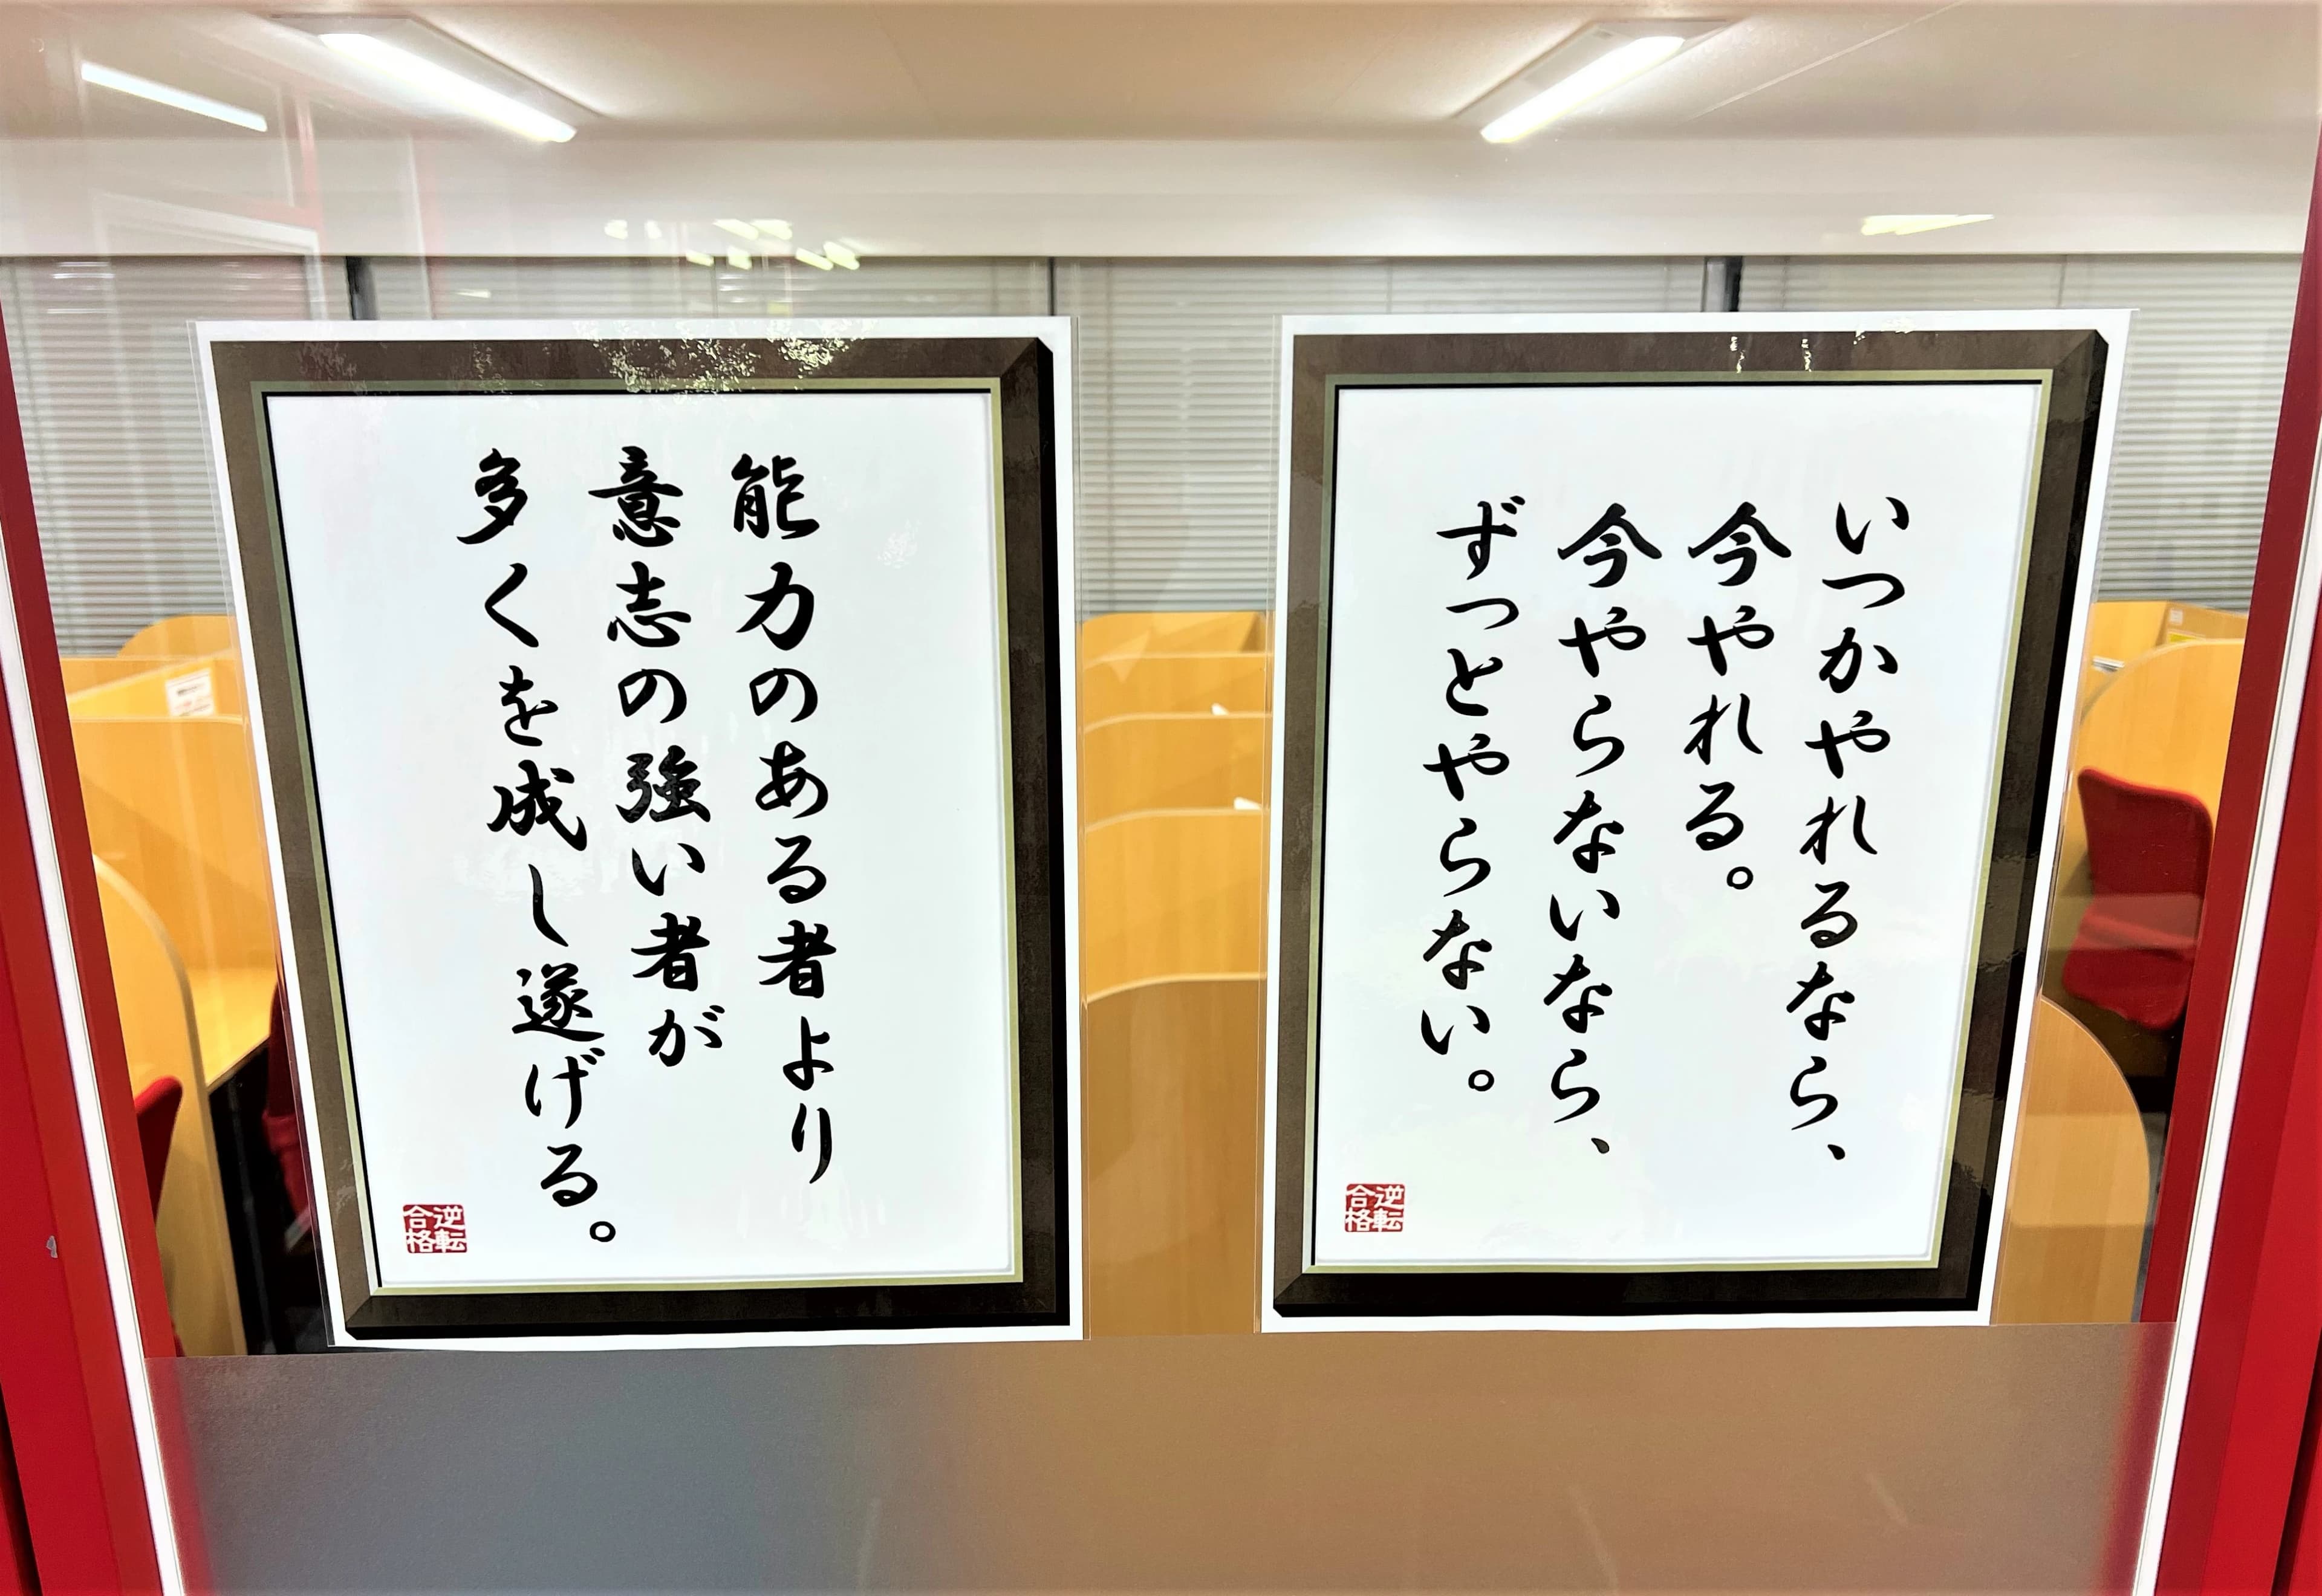 いつかやれるなら、
今やれる。
今やらないなら、
ずっとやらない。
逆転
合格
能力のある者より
意志の強い者が
多くを成し遂げる。
逆転
合格